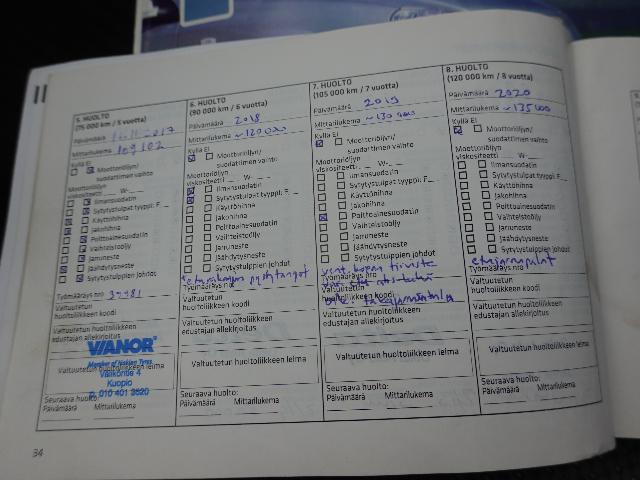 5. HUOLTO
(75 000 km / 5 vuotta)
Päivämäärä 2017
Mittarilukema 109 102
Kyllä Ei
Moottoriöljyn/
suodattimen vaihto
Moottoriöljyn
viskositeetti W-
Ilmansuodatin
Sytytystulpat tyyppi: F
Käyttöhihna
Jakohihna
Polttoainesuodatin
Vaihteistoöljy
Jarruneste
Jäähdytysneste
Sytytystulppien johdot
Työmääräys nro
Valtuutetun
huoltoliikkeen koodi
Valtuutetun huoltoliikkeen
edustajan allekirjoitus
VIANOR
Member of Nokian Tyres
Valtuutetun huoltoliikkeen leima
Väliköntie 4
Kuopio
P. 010 401 3520
Seuraava huolto:
Päivämäärä Mittarilukema
6. HUOLTO
(90 000 km / 6 vuotta)
Päivämäärä 2018
Mittarilukema ~120 000
Kyllä Ei
Moottoriöljyn/
suodattimen vaihto
Moottoriöljyn
viskositeetti W-
Ilmansuodatin
Sytytystulpat tyyppi: F
Käyttöhihna
Jakohihna
Polttoainesuodatin
Vaihteistoöljy
Jarruneste
Jäähdytysneste
Sytytystulppien johdot
Työmääräys nro
Valtuutetun
huoltoliikkeen koodi
Valtuutetun huoltoliikkeen
edustajan allekirjoitus
Valtuutetun huoltoliikkeen leima
Seuraava huolto:
Päivämäärä Mittarilukema
7. HUOLTO
(105 000 km / 7 vuotta)
Päivämäärä 2019
Mittarilukema ~130 000
Kyllä Ei
Moottoriöljyn/
suodattimen vaihto
Moottoriöljyn
viskositeetti W-
Ilmansuodatin
Sytytystulpat tyyppi: F
Käyttöhihna
Jakohihna
Polttoainesuodatin
Vaihteistoöljy
Jarruneste
Jäähdytysneste
Sytytystulppien johdot
vent. kopan tiiviste
Työmääräys nro
Valtuutetun
huoltoliikkeen koodi
Valtuutetun huoltoliikkeen
edustajan allekirjoitus
Valtuutetun huoltoliikkeen leima
Seuraava huolto:
Päivämäärä Mittarilukema
8. HUOLTO
(120 000 km / 8 vuotta)
Päivämäärä 2020
Mittarilukema ~135 000
Kyllä Ei
Moottoriöljyn/
suodattimen vaihto
Moottoriöljyn
viskositeetti W-
Ilmansuodatin
Sytytystulpat tyyppi: F
Käyttöhihna
Jakohihna
Polttoainesuodatin
Vaihteistoöljy
Jarruneste
Jäähdytysneste
Sytytystulppien johdot
etujarrupalat
Työmääräys nro
Valtuutetun
huoltoliikkeen koodi
Valtuutetun huoltoliikkeen
edustajan allekirjoitus
Valtuutetun huoltoliikkeen leima
Seuraava huolto:
Päivämäärä Mittarilukema
34